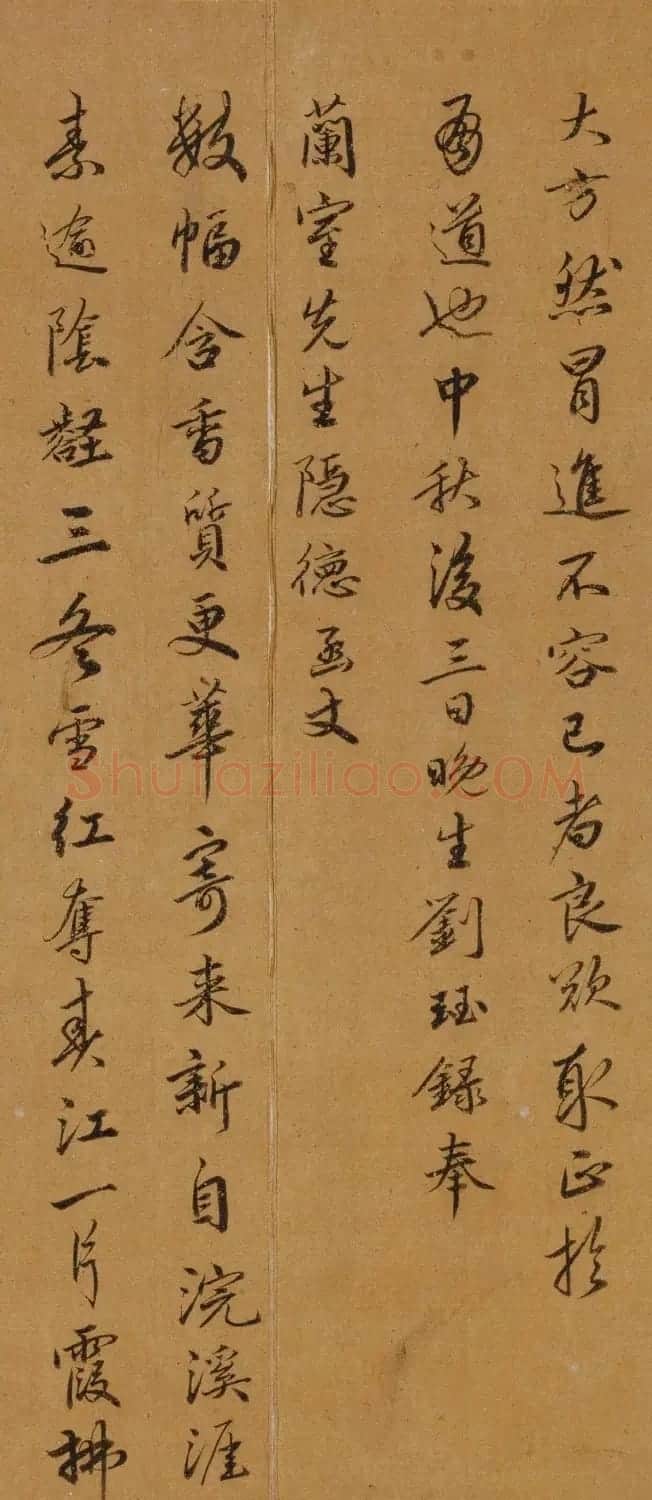 大方然冒進不容已者良欲取正於
有道也中秋後三日晚生劉珏錄奉
蘭室先生隱德函丈
數幅含香質更華寄来新自浣溪涯
素逾陰壑三冬雪紅奪春江一片霞拂
Shufaziliao.COM